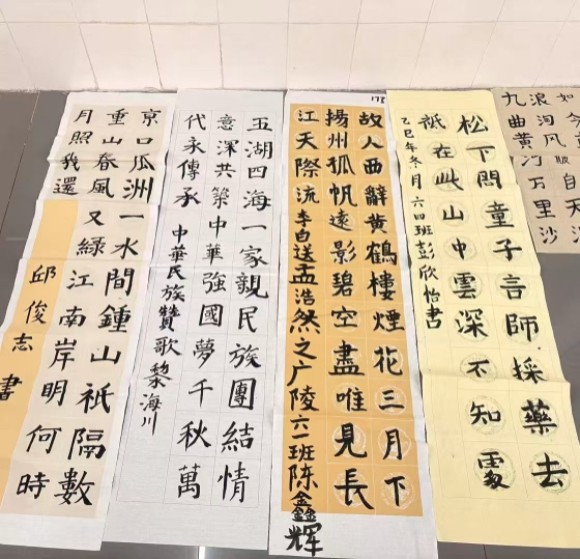 如今直
浪淘风簸自天涯
九曲黄河万里沙
松下問童子言師採藥去
祇在此山中雲深不知處
乙巳年冬月六四班彭欣怡書
故人西辭黄鶴樓煙花三月下
揚州孤帆遠影碧空盡唯見長
江天際流李白送孟浩然之广陵六一班陈鑫辉
五湖四海一家親民族團結情
意深共築中華強國夢千秋萬
代永傳承中華民族贊歌黎海川
京口瓜洲一水間鍾山祇隔數
重山春風又綠江南岸明何時
月照我還邱俊志書